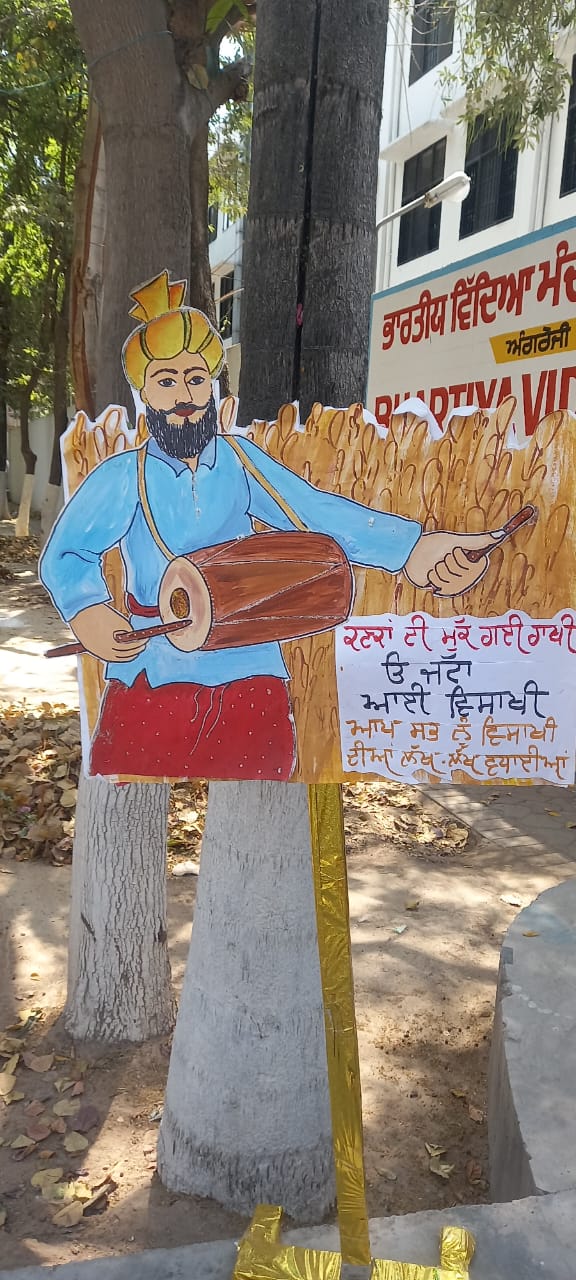 ਭਾਰਤੀਯ ਵਿੱਦਿਆ ਮੰਦ
ਅੰਗਰੇਜੀ
BHARTIYA VID
ਕਣਕਾਂ ਦੀ ਮੁੱਕ ਗਈ ਰਾਖੀ
ਓ ਜੱਟਾ
ਆਈ ਵਿਸਾਖੀ
ਆਪ ਸਭ ਨੂੰ ਵਿਸਾਖੀ
ਦੀਆਂ ਲੱਖ-ਲੱਖ ਵਧਾਈਆਂ